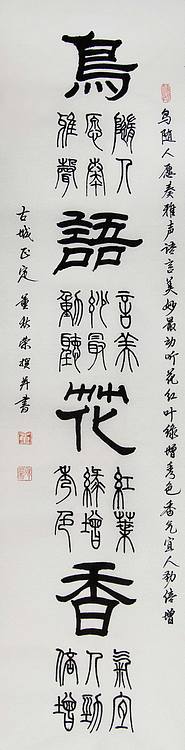 鸟随人愿奏雅声语言美妙最动听花红叶绿增秀色香气宜人劲倍增
鳥
隨人
愿奏
雅聲
語
言美
妙最
動聽
花
紅葉
綠增
秀色
香
氣宜
人勁
倍增
古城正定董秋荣撰并書